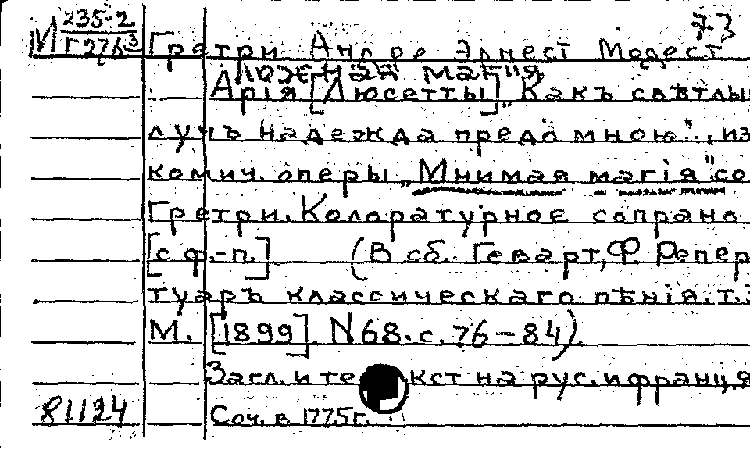 73
М 235-2
Г 276³
Гретри Андре Эрнест Модест
Ложная магия
Арія [Люсетты] „Какъ свѣтлы
лучъ надежда предо мною", из
комич. оперы „Мнимая магія" со
Гретри. Колоратурное сопрано
[с ф.-п.] (В сб. Геварт, Ф Репер
туаръ классическаго пѣнія. т.
М. [1899]. N 68. с. 76-84).
Загл. и текст на рус. и франц. я
81124
Соч. в 1775г.